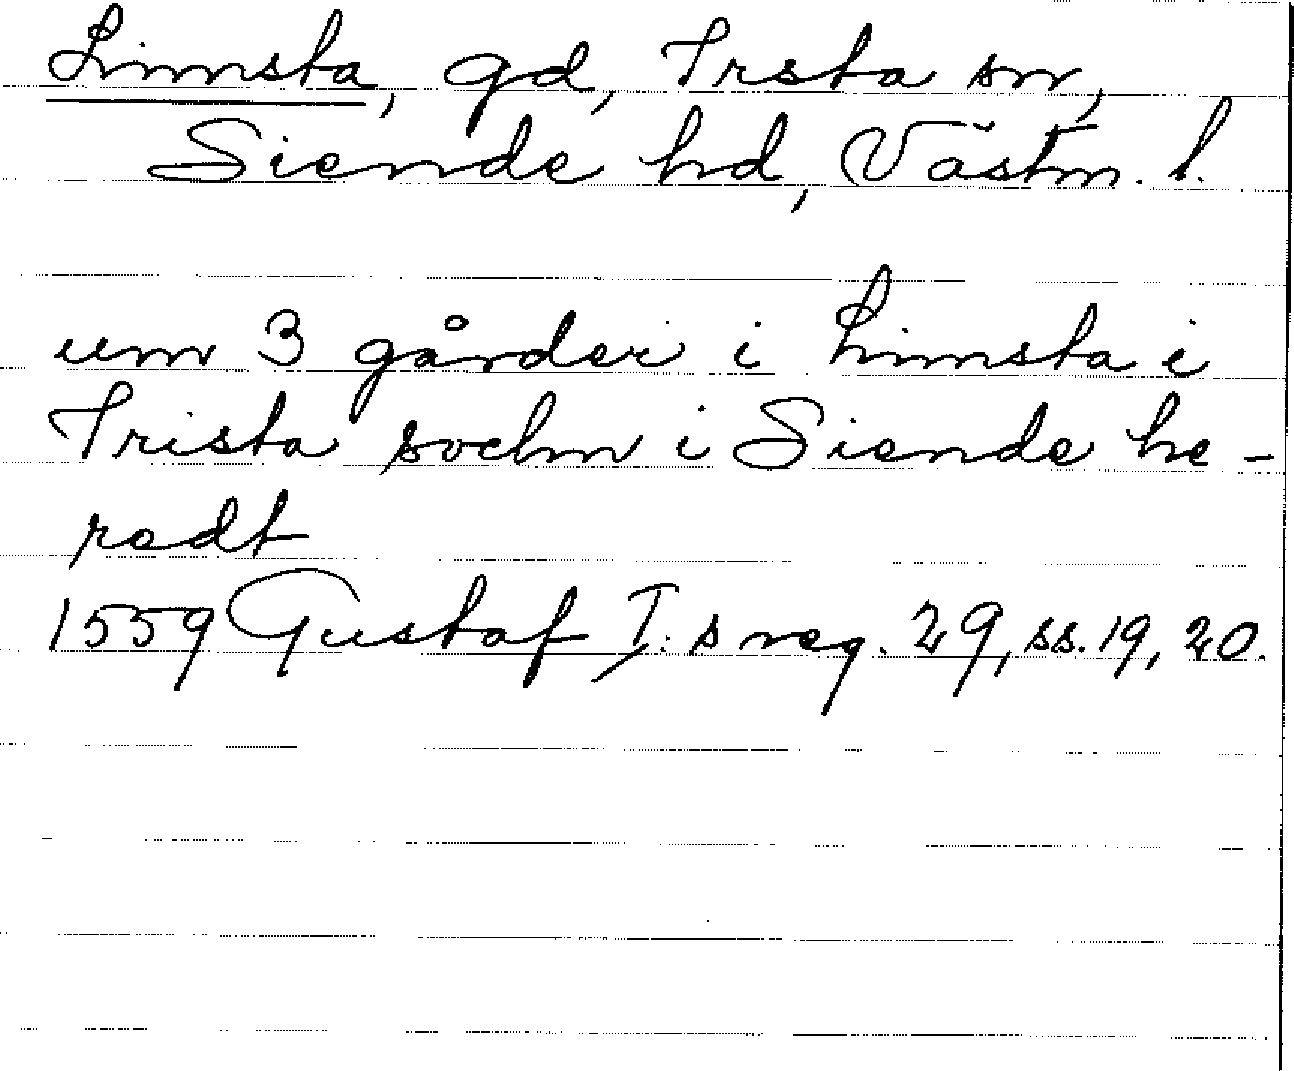 Linnsta, gd, Irsta sn,
Siende hd, Västm. l.
um 3 gårder i Linnsta i
Irista sochn i Siende he-
radt
1559 Gustaf I:s reg. 29, ss. 19, 20.